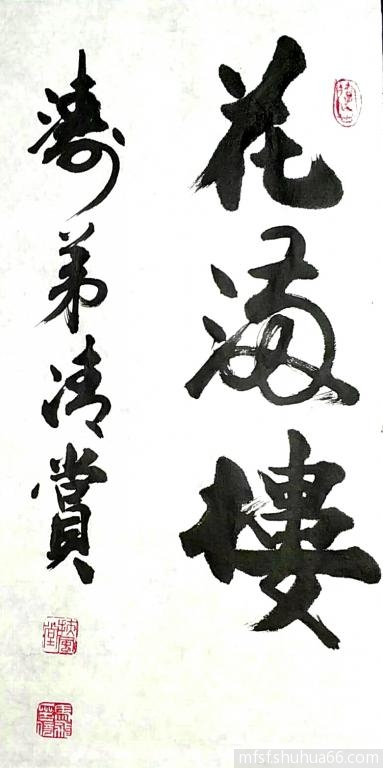 花满楼
涛弟清賞
mfsfshuhua66.com